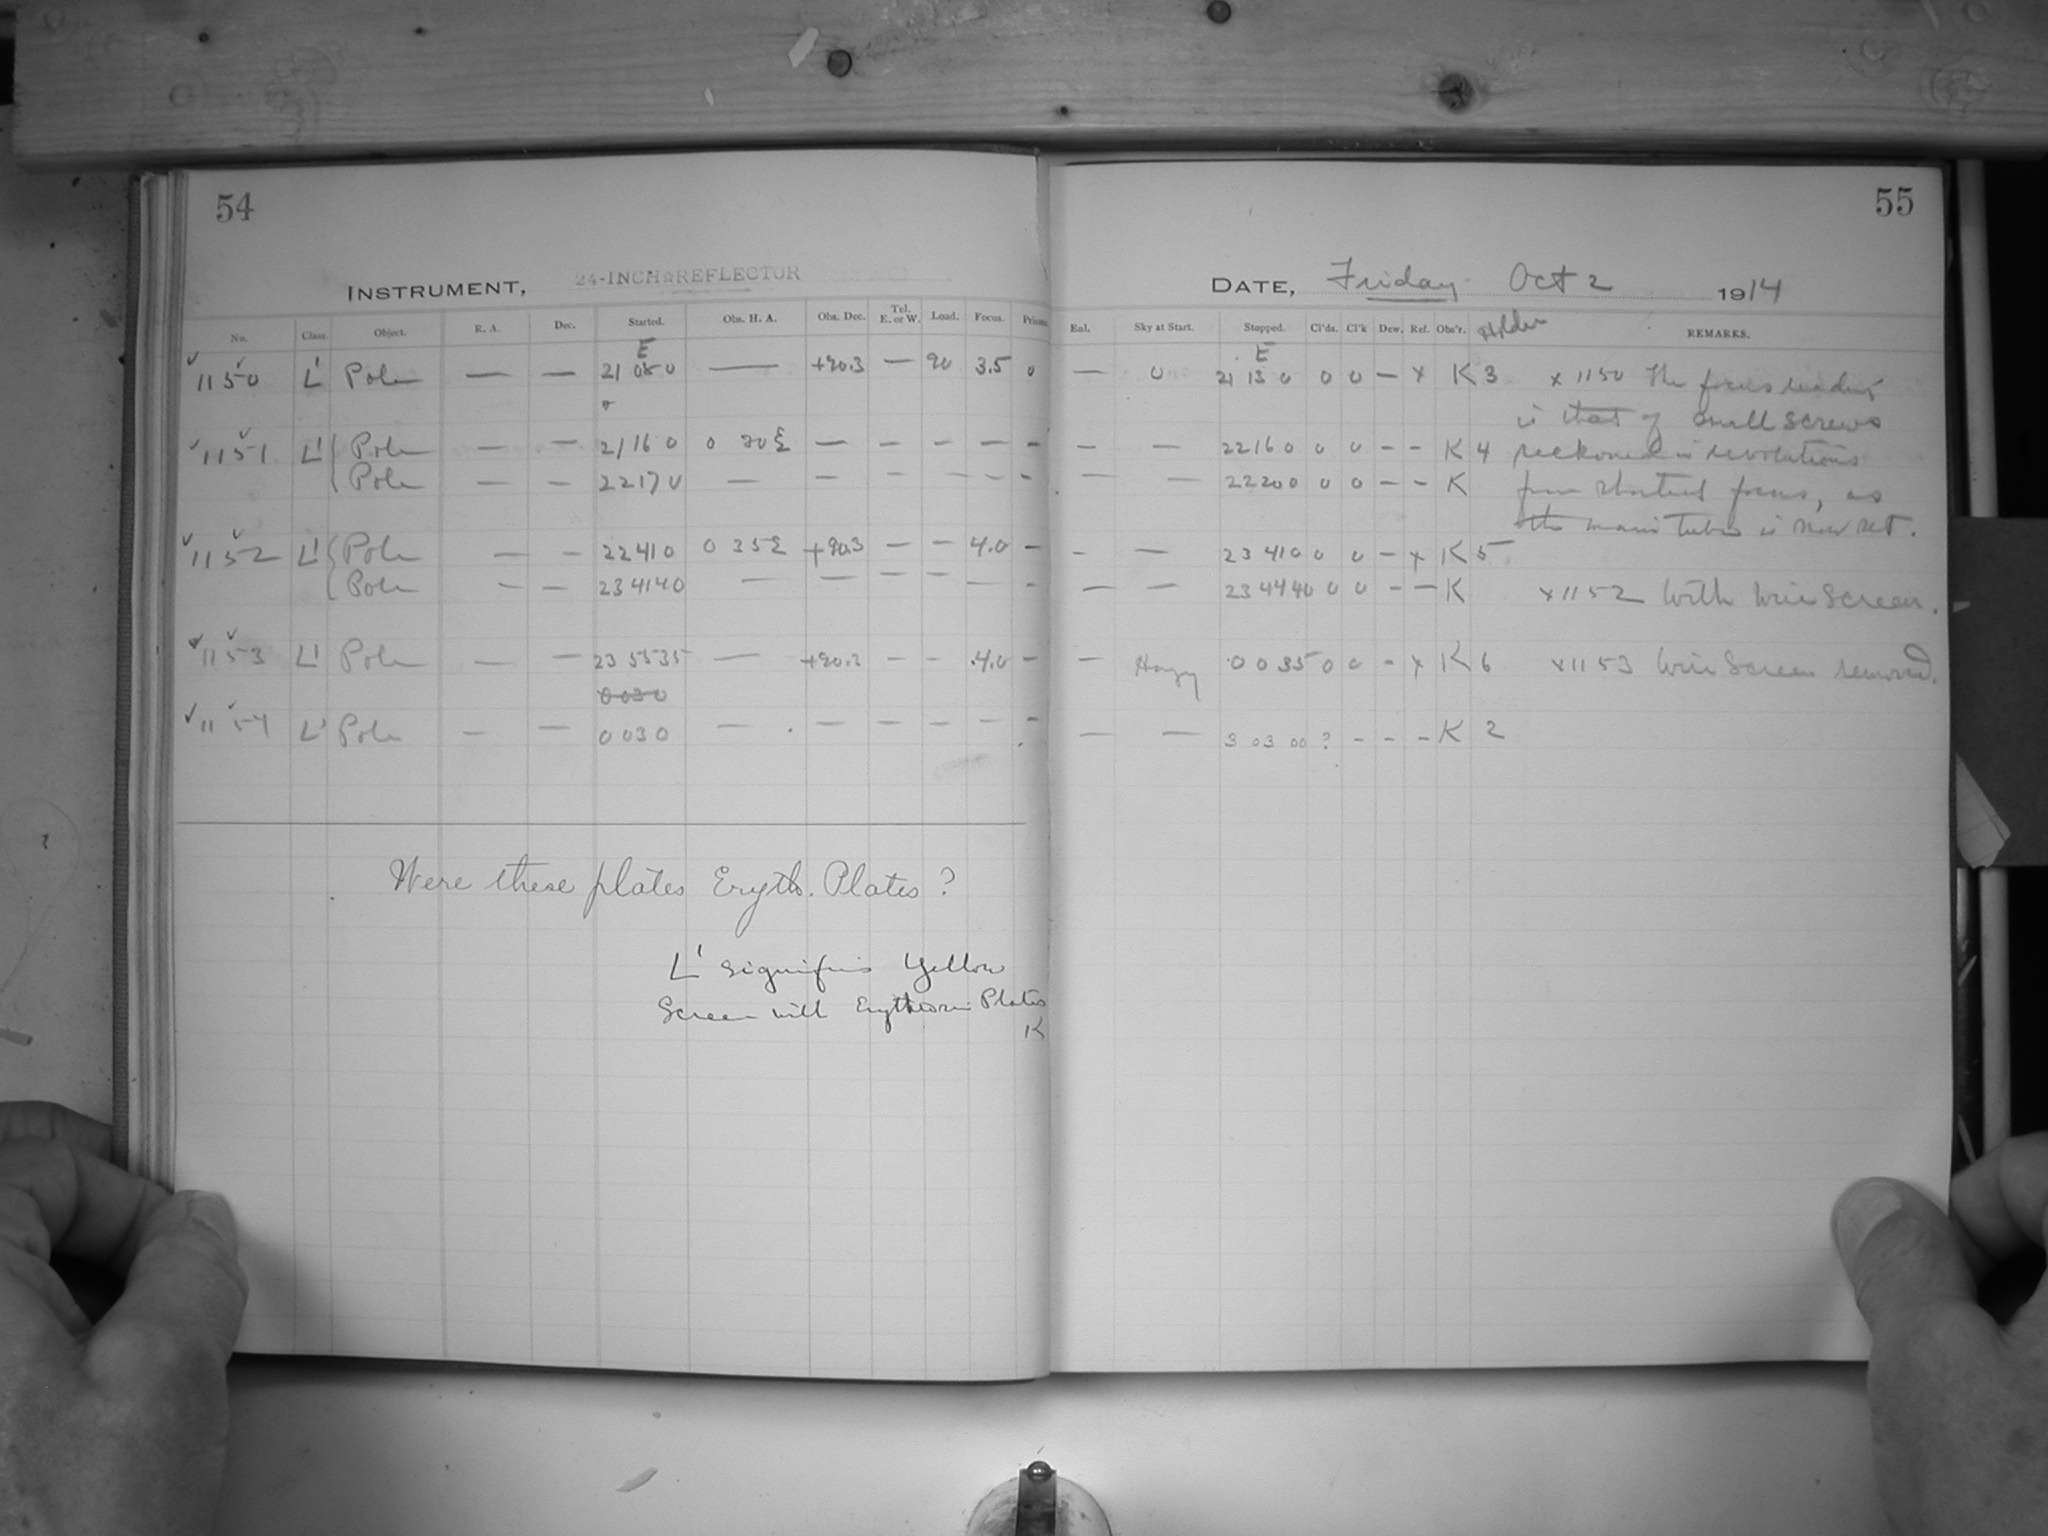 54
INSTRUMENT, 24-INCH☆REFLECTOR
No. Class. Object. R. A. Dec. Started. Obs. H. A. Obs. Dec. Tel. E. or W. Load. Focus. Prisms.
E
1150 L' Pole — — 21 05 0 — +90.3 — 90 3.5 0
1151 L' Pole — — 21 16 0 — — — — —
Pole — — 22 17 0 — — — — — —
1152 L' Pole — — 22 41 0 0 35 E +90.3 — — 4.0 —
Pole — — 23 41 40 — — — — — —
1153 L' Pole — — 23 55 35 — — — 4.0 —
0 03 0
1154 L' Pole — — 0 03 0 — — — — — —
Were these plates Eryth. Plates?
L' signifies Yellow
Screen with Plates
K
55
DATE, Friday Oct 2 1914
Enl. Sky at Start. Stopped. Cl'ds. Cl'k Dew. Ref. Obs'r. Holder REMARKS.
E
— 0 21 15 0 0 0 — x K 3 x 1150 The focus reading
is that of small screws
— — 22 16 0 0 0 — — K 4 reckoned in revolutions
— — 22 20 0 0 0 — — K from shortest focus, as
the main tube is now set.
— — 23 41 0 0 0 — x K 5
— — 23 44 40 0 0 — — K x 1152 With wire screen.
— Hazy 0 0 35 0 0 — x K 6 x 1153 Wire Screen removed.
— — 3 03 00 ? — — — K 2